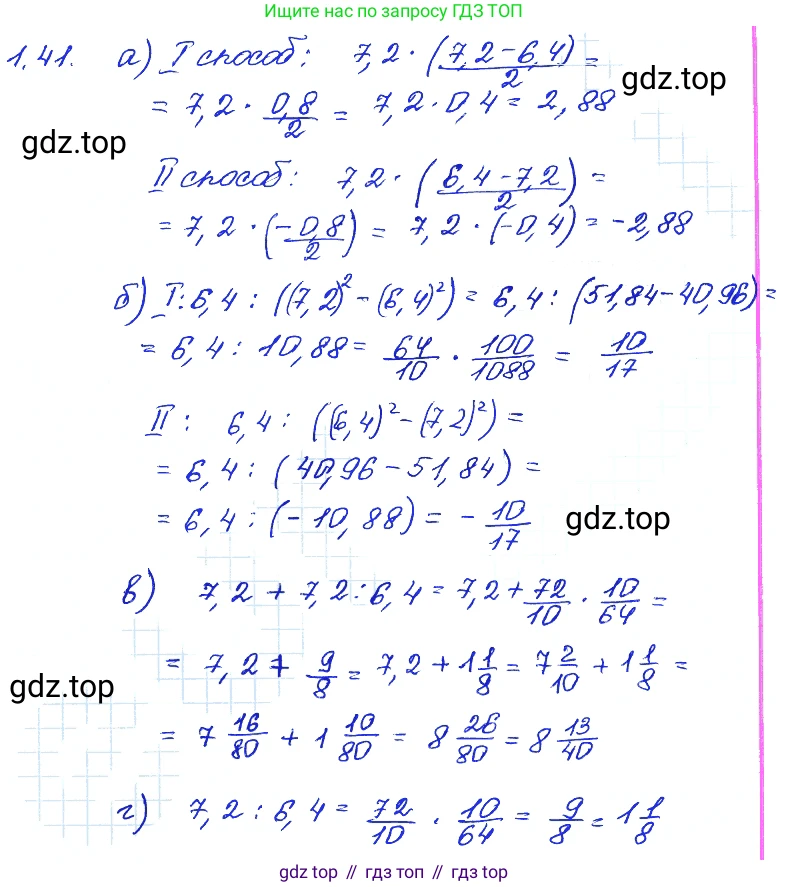 Ищите нас по запросу ГДЗ ТОП
1.41. а) I способ: 7,2 · (7,2 − 6,4)/2 =
gdz.top
= 7,2 · 0,8/2 = 7,2 · 0,4 = 2,88
gdz.top
II способ: 7,2 · (6,4 − 7,2)/2 =
= 7,2 · (−0,8/2) = 7,2 · (−0,4) = −2,88
б) I: 6,4 : ((7,2)² − (6,4)²) = 6,4 : (51,84 − 40,96) =
= 6,4 : 10,88 = 64/10 · 100/1088 = 10/17
II: 6,4 : ((6,4)² − (7,2)²) =
= 6,4 : (40,96 − 51,84) =
= 6,4 : (−10,88) = −10/17
gdz.top
в) 7,2 + 7,2 : 6,4 = 7,2 + 72/10 · 10/64 =
= 7,2 + 9/8 = 7,2 + 1 1/8 = 7 2/10 + 1 1/8 =
gdz.top
= 7 16/80 + 1 10/80 = 8 26/80 = 8 13/40
г) 7,2 : 6,4 = 72/10 · 10/64 = 9/8 = 1 1/8
gdz.top // гдз топ // gdz top